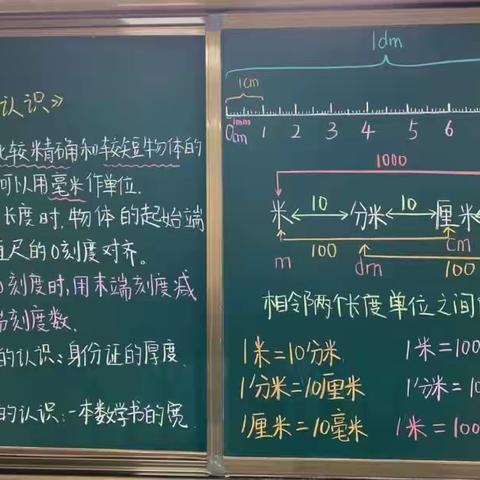 认识》
比较精确和较短物体的
可以用毫米作单位.
长度时,物体的起始端
直尺的0刻度对齐。
刻度时,用末端刻度减
端刻度数.
的认识:身份证的厚度.
的认识:一本数学书的宽
1dm
1cm
1mm
0cm 1 2 3 4 5 6
1000
米 10 分米 10 厘米
m 100 dm cm 100
相邻两个长度单位之间
1米=10分米. 1米=100
1分米=10厘米 1分米=10
1厘米=10毫米 1米=100